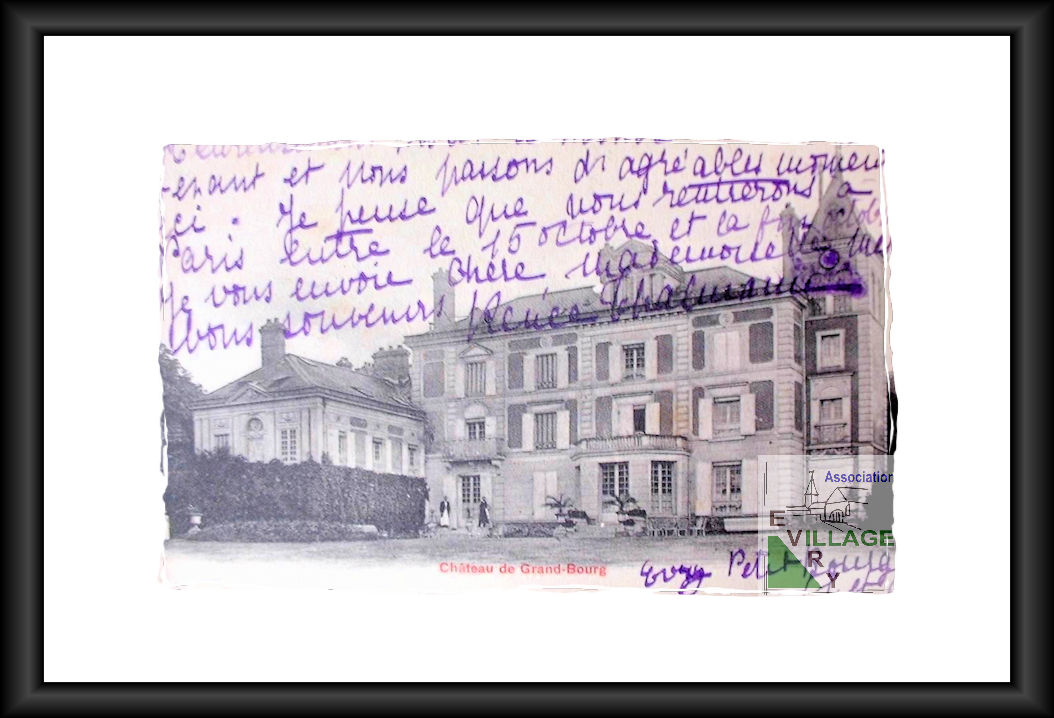 et nous passons d'agréables momen
ici. Je pense que nous rentrerons à
Paris entre le 15 octobre et la fin octob
Je vous envoie chère mademoiselle mes
bons souvenirs Renée
Château de Grand-Bourg
Evry Petit Bourg
Association
EVRY
VILLAGE